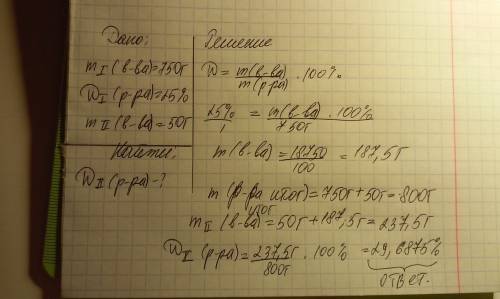 Дано:
m I (в-ва)=750г
W I (р-ра)=25%
m II (в-ва)=50г
Найти:
W II (р-ра)-?
Решение
W = m(в-ва) / m(р-ра) · 100%
25% / 1 = m(в-ва) · 100% / 750г
m(в-ва) = 18750 / 100 = 187,5г
m (р-ра итог)=750г+50г=800г
m II итог (в-ва)=50г+187,5г=237,5г
W II (р-ра)= 237,5г / 800г · 100% = 29,6875%
ответ.